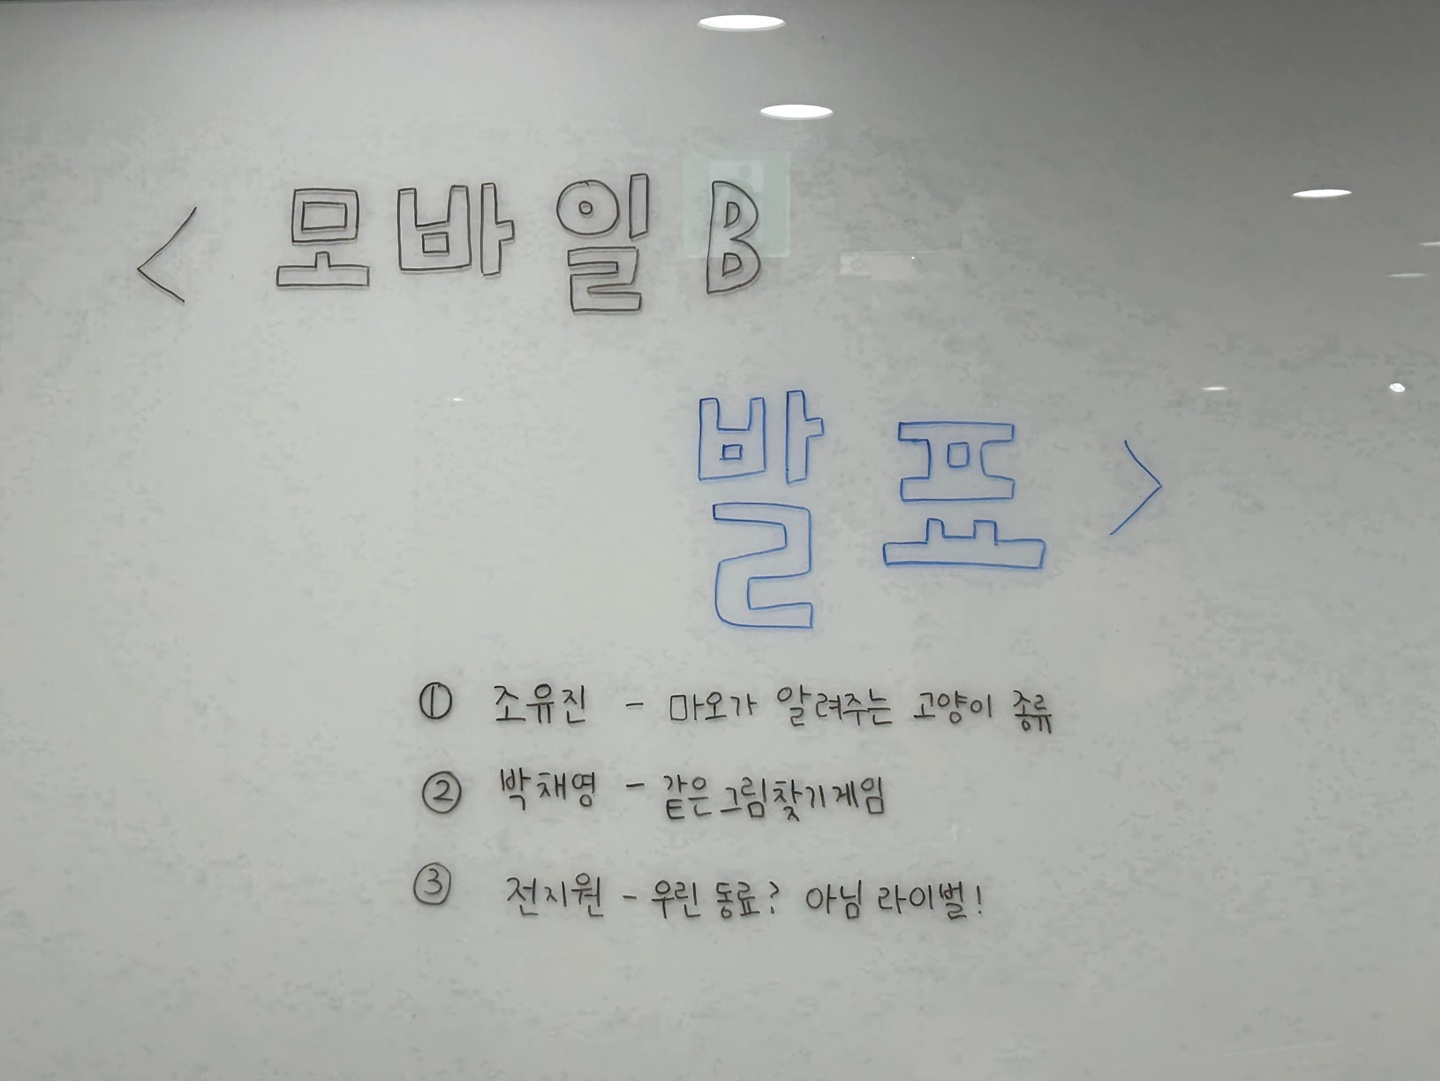 < 모바일 B
발표 >
① 조유진 - 마오가 알려주는 고양이 종류
② 박채영 - 같은그림찾기게임
③ 전지원 - 우린 동료? 아님 라이벌!